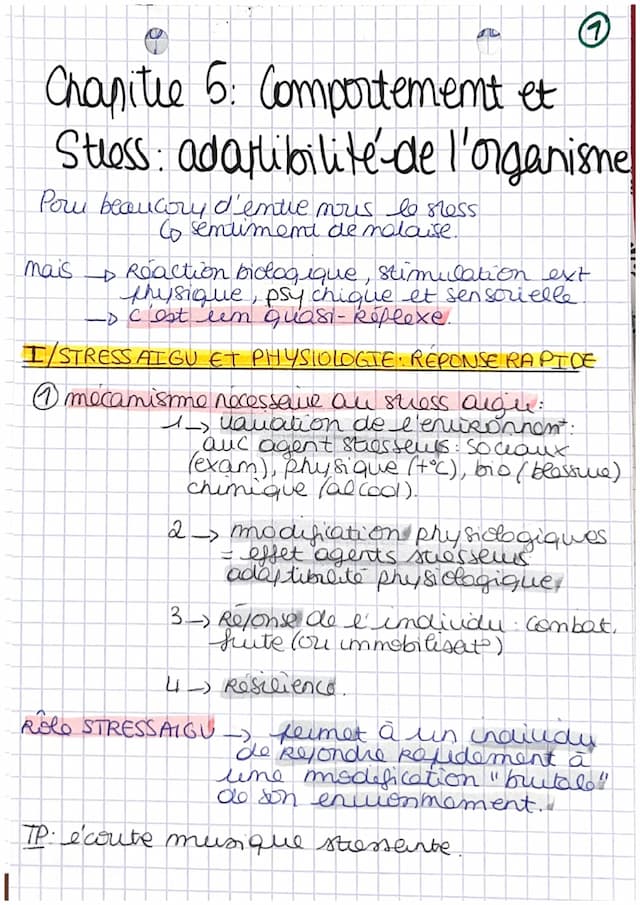 1
Chapitre 5: Comportement et
Stress: adaptibilité de l'organisme
Pour beaucoup d'entre nous le stress
↳ sentiment de malaise.
mais → Réaction biologique, stimulation ext
physique, psychique et sensorielle.
→ c'est un quasi-réflexe.
I/STRESS AIGU ET PHYSIOLOGIE: RÉPONSE RAPIDE
① mécanisme nécessaire au stress aigu:
1→ variation de l'environnemt:
avc agent stresseurs: sociaux
(exam), physique (t°c), bio (blessure)
chimique (alcool).
2 → modification physiologiques
= effet agents stresseurs
adaptibilité physiologique,
3 → Réponse de l'individu: combat,
fuite (ou immobilisat°)
4 → Résilience.
Rôle STRESS AIGU → permet à un individu
de répondre rapidement à
une modification "brutale"
de son environnement.
TP: écoute musique stressante.